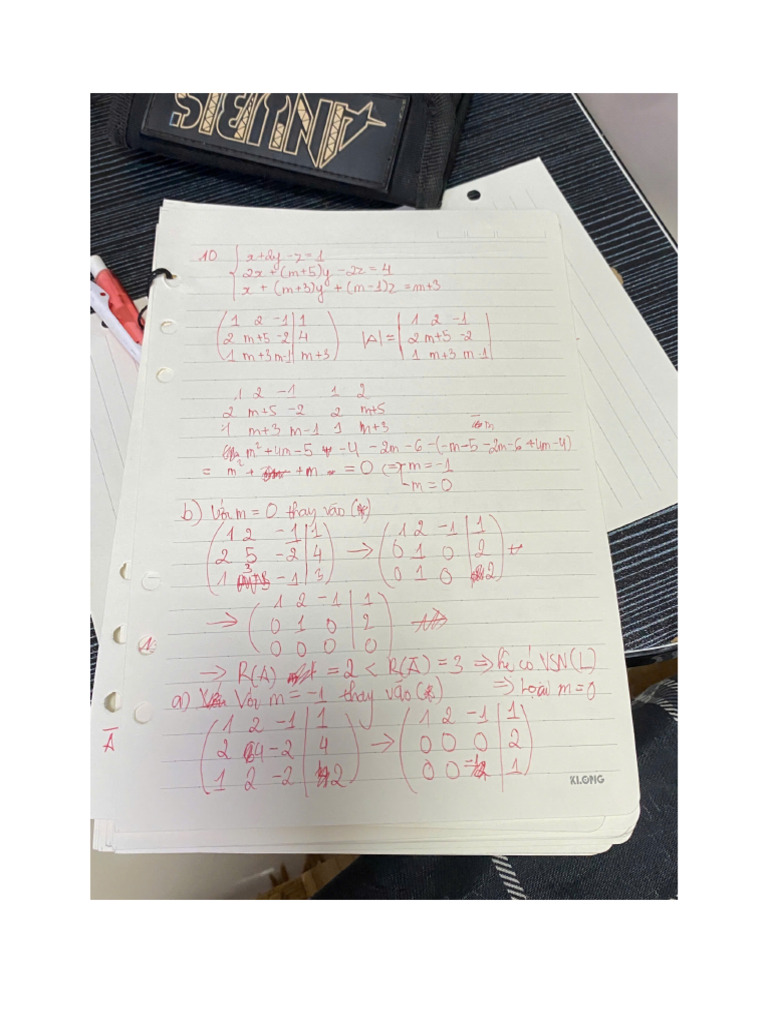 ANUBIS
10 { x+2y-z=1
2x+(m+5)y-2z=4
x+(m+3)y+(m-1)z=m+3
( 1 2 -1 | 1 )
( 2 m+5 -2 | 4 )
( 1 m+3 m-1 | m+3 )
|A| = | 1 2 -1 |
| 2 m+5 -2 |
| 1 m+3 m-1 |
1 2 -1 1 2
2 m+5 -2 2 m+5
1 m+3 m-1 1 m+3
m²+4m-5 -4-2m-6-(-m-5-2m-6+4m-4)
= m² +m = 0 (=> [ m=-1
m=0
b) Với m=0 thay vào (*)
( 1 2 -1 | 1 ) → ( 1 2 -1 | 1 )
( 2 5 -2 | 4 ) ( 0 1 0 | 2 )
( 1 3 -1 | 3 ) ( 0 1 0 | 2 )
→ ( 1 2 -1 | 1 )
( 0 1 0 | 2 )
( 0 0 0 | 0 )
→ R(A) = 2 < R(Ā) = 3 => hệ có VSN (L)
=> Loại m=0
a) Với m = -1 thay vào (*)
Ā ( 1 2 -1 | 1 ) → ( 1 2 -1 | 1 )
( 2 4 -2 | 4 ) ( 0 0 0 | 2 )
( 1 2 -2 | 2 ) ( 0 0 -1 | 1 )
KLONG